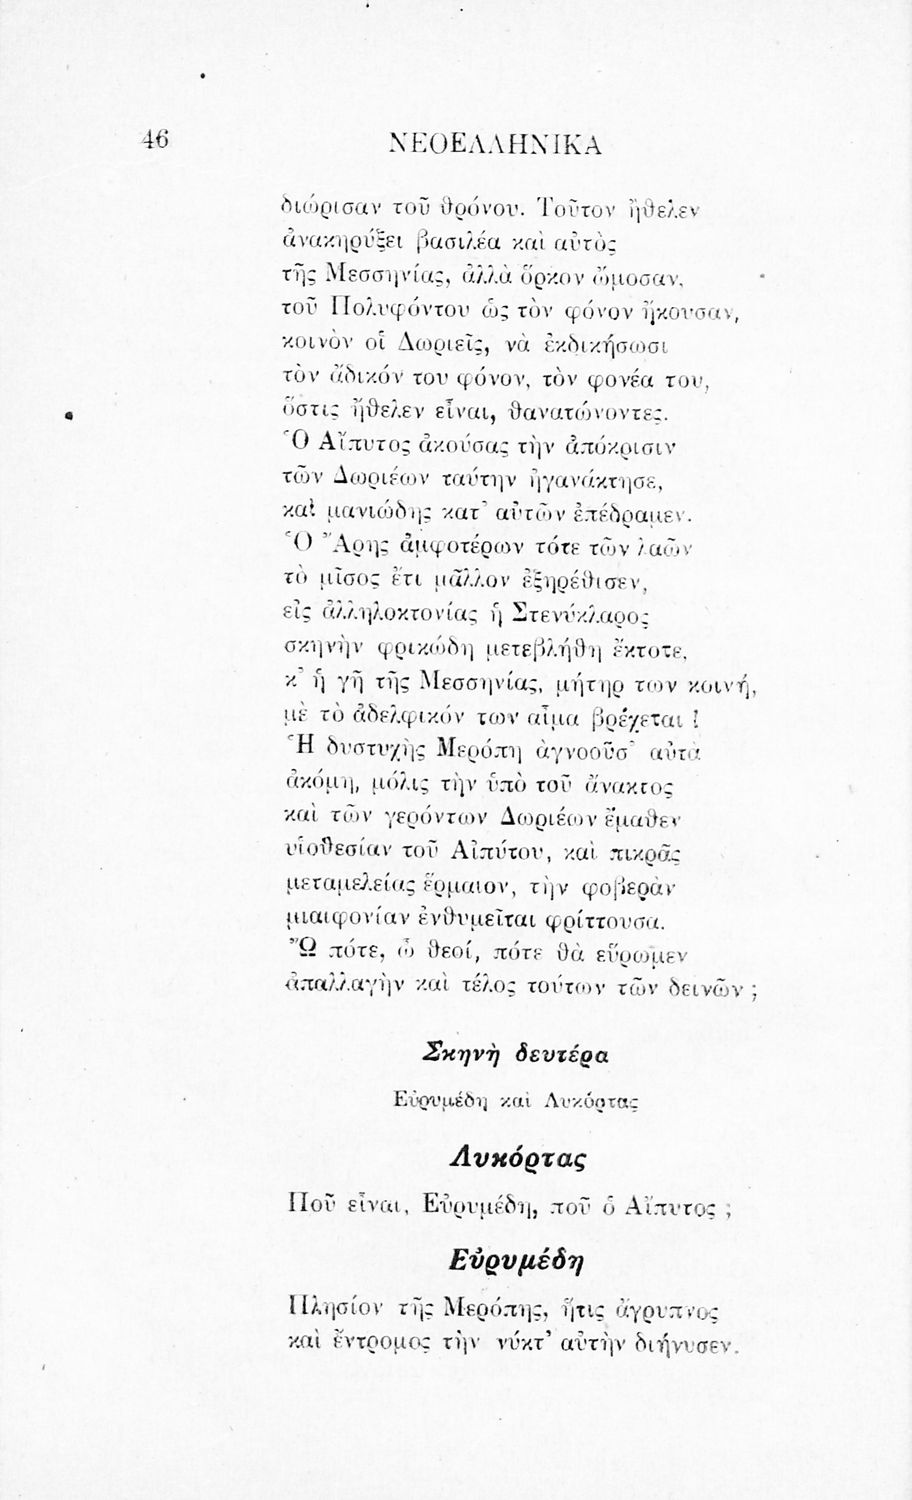 46
ΝΕΟΕΛΛΗΝΙΚΑ
διώρισαν τοῦ θρόνου. Τοῦτον ἤθελεν
ἀνακηρύξει βασιλέα καὶ αὐτὸς
τῆς Μεσσηνίας, ἀλλὰ ὅρκον ὤμοσαν,
τοῦ Πολυφόντου ὡς τὸν φόνον ἤκουσαν,
κοινὸν οἱ Δωριεῖς, νὰ ἐκδικήσωσι
τὸν ἄδικόν του φόνον, τὸν φονέα του,
ὅστις ἤθελεν εἶναι, θανατώνοντες.
Ὁ Αἴπυτος ἀκούσας τὴν ἀπόκρισιν
τῶν Δωριέων ταύτην ἠγανάκτησε,
καὶ μανιώδης κατ' αὐτῶν ἐπέδραμεν.
Ὁ Ἄρης ἀμφοτέρων τότε τῶν λαῶν
τὸ μῖσος ἔτι μᾶλλον ἐξηρέθισεν,
εἰς ἀλληλοκτονίας ἡ Στενύκλαρος
σκηνὴν φρικώδη μετεβλήθη ἔκτοτε,
κ' ἡ γῆ τῆς Μεσσηνίας, μήτηρ των κοινή,
μὲ τὸ ἀδελφικόν των αἷμα βρέχεται !
Ἡ δυστυχὴς Μερόπη ἀγνοοῦσ' αὐτὰ
ἀκόμη, μόλις τὴν ὑπὸ τοῦ ἄνακτος
καὶ τῶν γερόντων Δωριέων ἔμαθεν
υἱοθεσίαν τοῦ Αἰπύτου, καὶ πικρᾶς
μεταμελείας ἕρμαιον, τὴν φοβερὰν
μιαιφονίαν ἐνθυμεῖται φρίττουσα.
Ὢ πότε, ὦ θεοί, πότε θὰ εὕρωμεν
ἀπαλλαγὴν καὶ τέλος τούτων τῶν δεινῶν ;
Σκηνὴ δευτέρα
Εὐρυμέδη καὶ Λυκόρτας
Λυκόρτας
Ποῦ εἶναι, Εὐρυμέδη, ποῦ ὁ Αἴπυτος ;
Εὐρυμέδη
Πλησίον τῆς Μερόπης, ἥτις ἄγρυπνος
καὶ ἔντρομος τὴν νύκτ' αὐτὴν διήνυσεν.